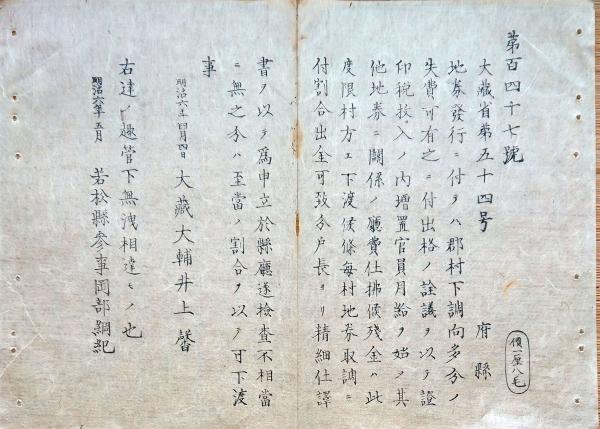 第百四十七號
大藏省第五十四号
府縣
價一厘八毛
地券發行ニ付テハ郡村下調向多分ノ
失費可有之ニ付出格ノ詮議ヲ以テ證
印税技入ノ内増置官員月給ヲ始メ其
他地券ニ關係ノ廳費仕拂候残金ハ此
度限村方エ下渡候條毎村地券取調ニ
付割合出金可致分戸長ヨリ精細仕譯
書ヲ以テ為申立於縣廳遂檢査不相當
ニ無之分ハ至當ノ割合ヲ以テ可下渡
事
明治六年四月四日 大藏大輔井上馨
右達ノ趣管下無洩相達モノ也
明治六年五月 若松縣參事岡部綱紀